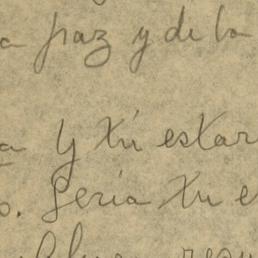 a paz y de la
a y tú estar
o. Seria tu e